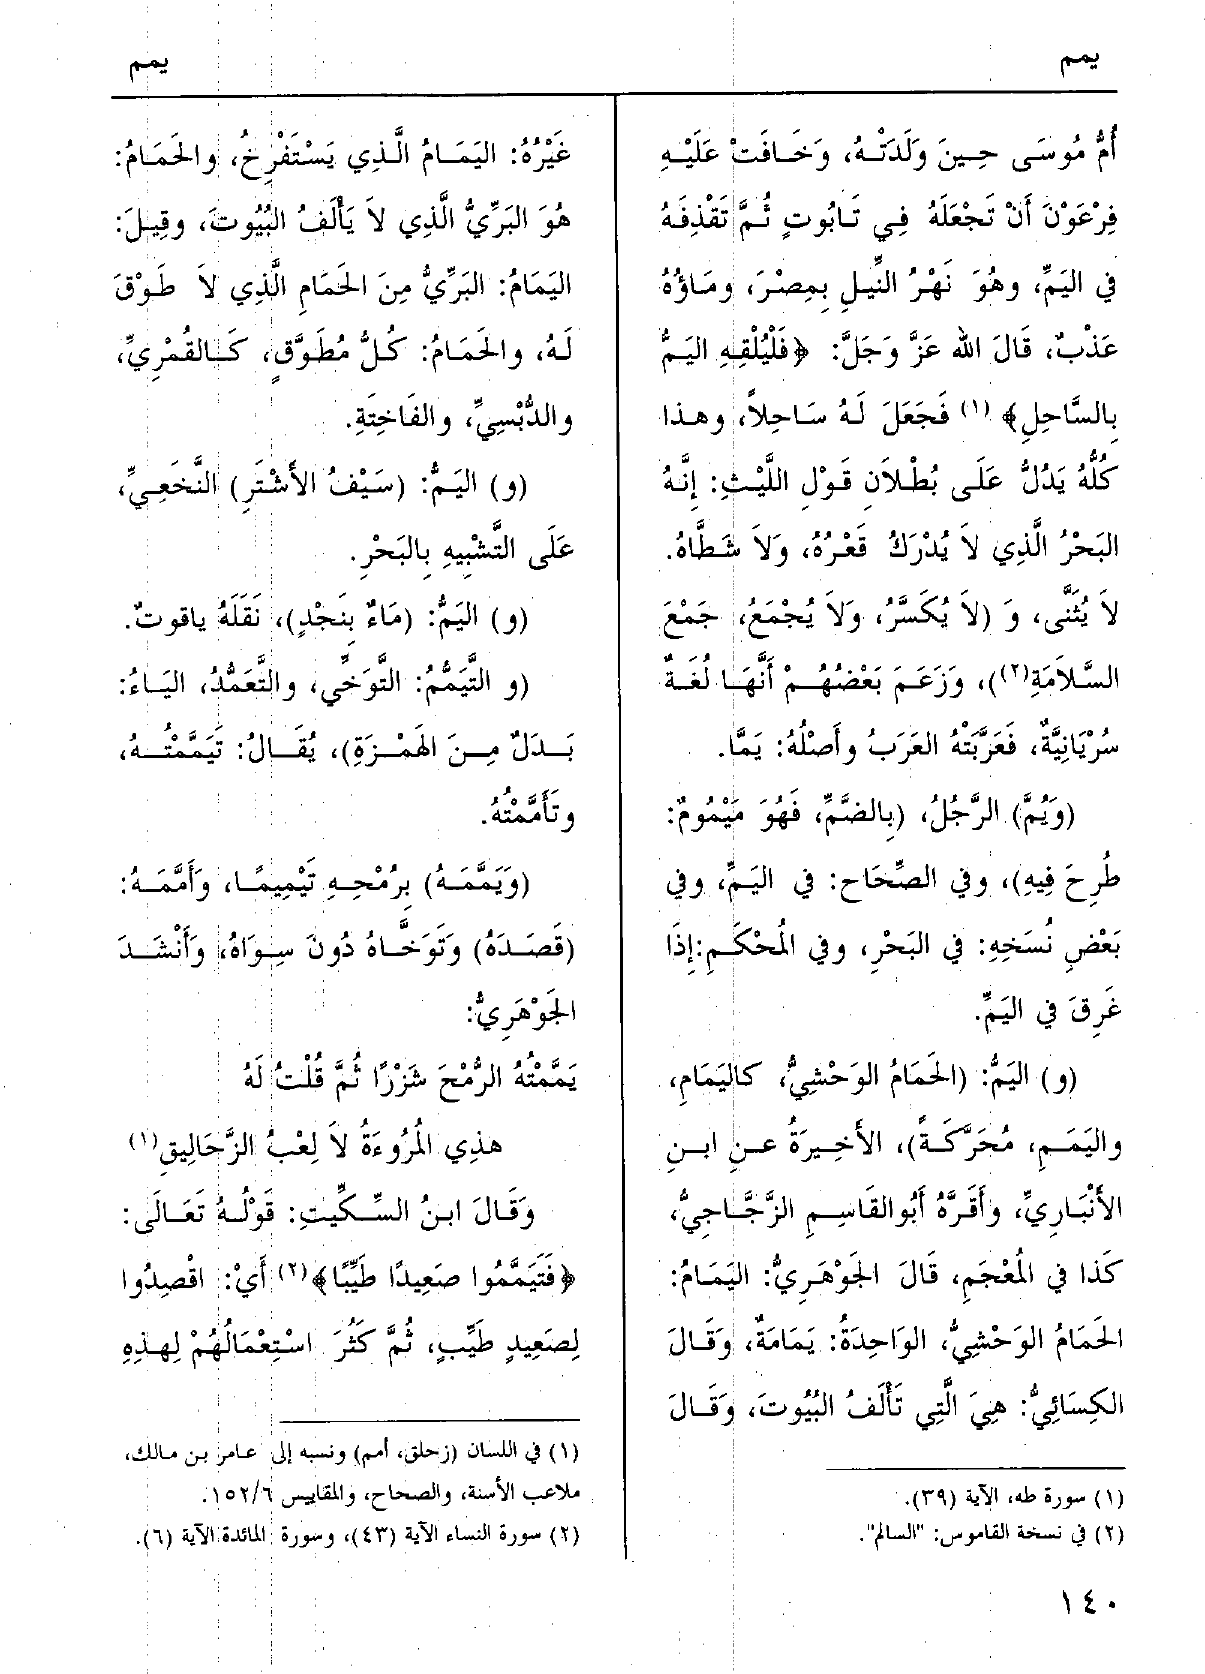 يمم
يمم
أُمُّ مُوسَى حِينَ وَلَدَتْهُ، وَخَافَتْ عَلَيْهِ
فِرْعَوْنَ أَنْ تَجْعَلَهُ فِي تَابُوتٍ ثُمَّ تَقْذِفَهُ
في اليَمِّ، وهُوَ نَهْرُ النِّيلِ بِمِصْرَ، ومَاؤُهُ
عَذْبٌ، قَالَ الله عَزَّ وَجَلَّ: ﴿فَلْيُلْقِهِ اليَمُّ
بِالسَّاحِلِ﴾ (١) فَجَعَلَ لَهُ سَاحِلاً، وهـذا
كُلُّهُ يَدُلُّ عَلَى بُطْلاَنِ قَوْلِ اللَّيْثِ: إِنَّهُ
البَحْرُ الَّذِي لاَ يُدْرَكُ قَعْرُهُ، وَلاَ شَطَّاهُ.
لاَ يُثَنَّى، وَ (لاَ يُكَسَّرُ، وَلاَ يُجْمَعُ، جَمْعَ
السَّلاَمَةِ(٢))، وَزَعَمَ بَعْضُهُمْ أَنَّهَا لُغَةٌ
سُرْيَانِيَّةٌ، فَعَرَّبَتْهُ العَرَبُ وأَصْلُهُ: يَمَّا.
(وَيُمَّ) الرَّجُلُ، (بِالضَّمِّ، فَهُوَ مَيْمُومٌ:
طُرِحَ فِيهِ)، وفي الصِّحَاحِ: في اليَمِّ، وفي
بَعْضِ نُسَخِهِ: في البَحْرِ، وفي المُحْكَمِ:إِذَا
غَرِقَ في اليَمِّ.
(و) اليَمُّ: (الحَمَامُ الوَحْشِيُّ، كاليَمَامِ،
واليَمَمِ، مُحَرَّكَةً)، الأَخِيرَةُ عَنِ ابنِ
الأَنْبَارِيِّ، وأَقَرَّهُ أَبُو القَاسِمِ الزَّجَّاجِيُّ،
كَذا في المُعْجَمِ، قَالَ الجَوْهَرِيُّ: اليَمَامُ:
الحَمَامُ الوَحْشِيُّ، الوَاحِدَةُ: يَمَامَةٌ، وَقَالَ
الكِسَائِيُّ: هِيَ الَّتِي تَأْلَفُ البُيُوتَ، وَقَالَ
(١) سورة طه، الآية (٣٩).
(٢) في نسخة القاموس: "السالم".
غَيْرُهُ: اليَمَامُ الَّذِي يَسْتَفْرِخُ، والحَمَامُ:
هُوَ البَرِّيُّ الَّذِي لاَ يَأْلَفُ البُيُوتَ، وقِيلَ:
اليَمَامُ: البَرِّيُّ مِنَ الحَمَامِ الَّذِي لاَ طَوْقَ
لَهُ، والحَمَامُ: كُلُّ مُطَوَّقٍ، كَالقُمْرِيِّ،
والدُّبْسِيِّ، والفَاخِتَةِ.
(و) اليَمُّ: (سَيْفُ الأَشْتَرِ) النَّخَعِيِّ،
عَلَى التَّشْبِيهِ بِالبَحْرِ.
(و) اليَمُّ: (مَاءٌ بِنَجْدٍ)، نَقَلَهُ ياقوتٌ.
(و التَّيَمُّمُ: التَّوَخِّي، والتَّعَمُّدُ، اليَاءُ:
بَدَلٌ مِنَ الهَمْزَةِ)، يُقَالُ: تَيَمَّمْتُهُ،
وتَأَمَّمْتُهُ.
(وَيَمَّمَهُ) بِرُمْحِهِ تَيْمِيمًا، وَأَمَّمَهُ:
(قَصَدَهُ) وَتَوَخَّاهُ دُونَ سِوَاهُ، وَأَنْشَدَ
الجَوْهَرِيُّ:
يَمَّمْتُهُ الرُّمْحَ شَزْرًا ثُمَّ قُلْتُ لَهُ
هذِي المُرُوءَةُ لاَ لِعْبُ الزَّحَالِيقِ(١)
وَقَالَ ابنُ السِّكِّيتِ: قَوْلُهُ تَعَالَى:
﴿فَتَيَمَّمُوا صَعِيدًا طَيِّبًا﴾(٢) أَيْ: اقْصِدُوا
لِصَعِيدٍ طَيِّبٍ، ثُمَّ كَثُرَ اسْتِعْمَالُهُمْ لِهذِهِ
(١) في اللسان (زحلق، أمم) ونسبه إلى عامر بن مالك،
ملاعب الأسنة، والصحاح، والمقاييس ١٥٢/٦.
(٢) سورة النساء الآية (٤٣)، وسورة المائدة الآية (٦).
١٤٠